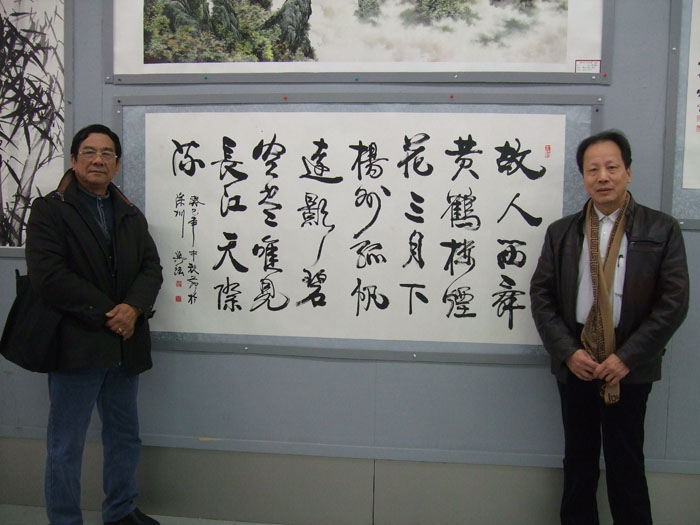 故人西辞
黄鶴楼煙
花三月下
楊州孤帆
遠影碧
空尽唯見
長江天際
流
年中秋節於
深圳